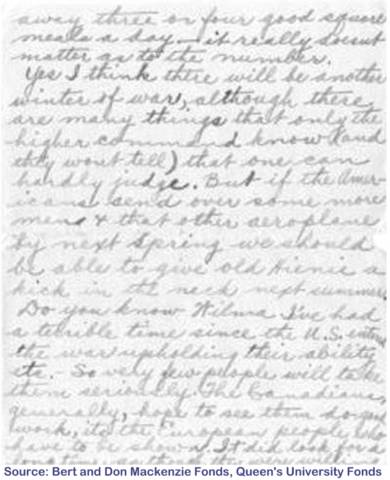 away three or four good square
meals a day – it really doesnt
matter as to the number.
Yes I think there will be another
winter of war, although there
are many things that only the
higher command know (and
they wont tell) that one can
hardly judge. But if the Amer-
icans send over some more
mens & that other aeroplane
by next Spring we should
be able to give old Hienie a
kick in the neck next summer.
Do you know Wilma I've had
a terrible time since the U.S. entered
the war upholding their ability
etc. – So very few people will take
them seriously. The Canadians,
generally, hope to see them do good
work, its the European people who
have to be shown. It did look for a
long time as though they were
Source: Bert and Don Mackenzie Fonds, Queen's University Fonds